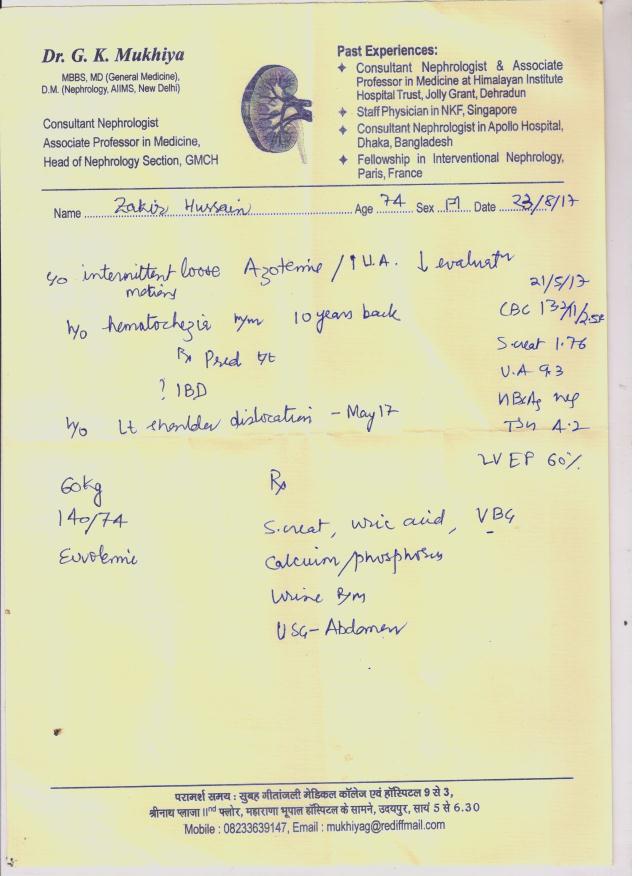 Dr. G. K. Mukhiya
MBBS, MD (General Medicine),
D.M. (Nephrology, AIIMS, New Delhi)
Consultant Nephrologist
Associate Professor in Medicine,
Head of Nephrology Section, GMCH
Past Experiences:
Consultant Nephrologist & Associate
Professor in Medicine at Himalayan Institute
Hospital Trust, Jolly Grant, Dehradun
Staff Physician in NKF, Singapore
Consultant Nephrologist in Apollo Hospital,
Dhaka, Bangladesh
Fellowship in Interventional Nephrology,
Paris, France
Name Zakir Hussain Age 74 Sex M Date 23/8/17
c/o intermittent loose Azotemia / ↑ U.A. ↓ evaluatn
motions
h/o hematochezia 10 years back
Rx Pred
? IBD
h/o Lt shoulder dislocation - May 17
21/5/17
CBC
S.creat 1.76
U.A 9.3
HBsAg neg
TSH 4.2
LVEF 60%
60kg
140/74
Euvolemic
Rx
S.creat, uric acid, VBG
Calcium/phosphorus
Urine R/m
USG-Abdomen
परामर्श समय : सुबह गीतांजली मेडिकल कॉलेज एवं हॉस्पिटल 9 से 3,
श्रीनाथ प्लाजा IInd फ्लोर, महाराणा भूपाल हॉस्पिटल के सामने, उदयपुर, सायं 5 से 6.30
Mobile : 08233639147, Email : mukhiyag@rediffmail.com